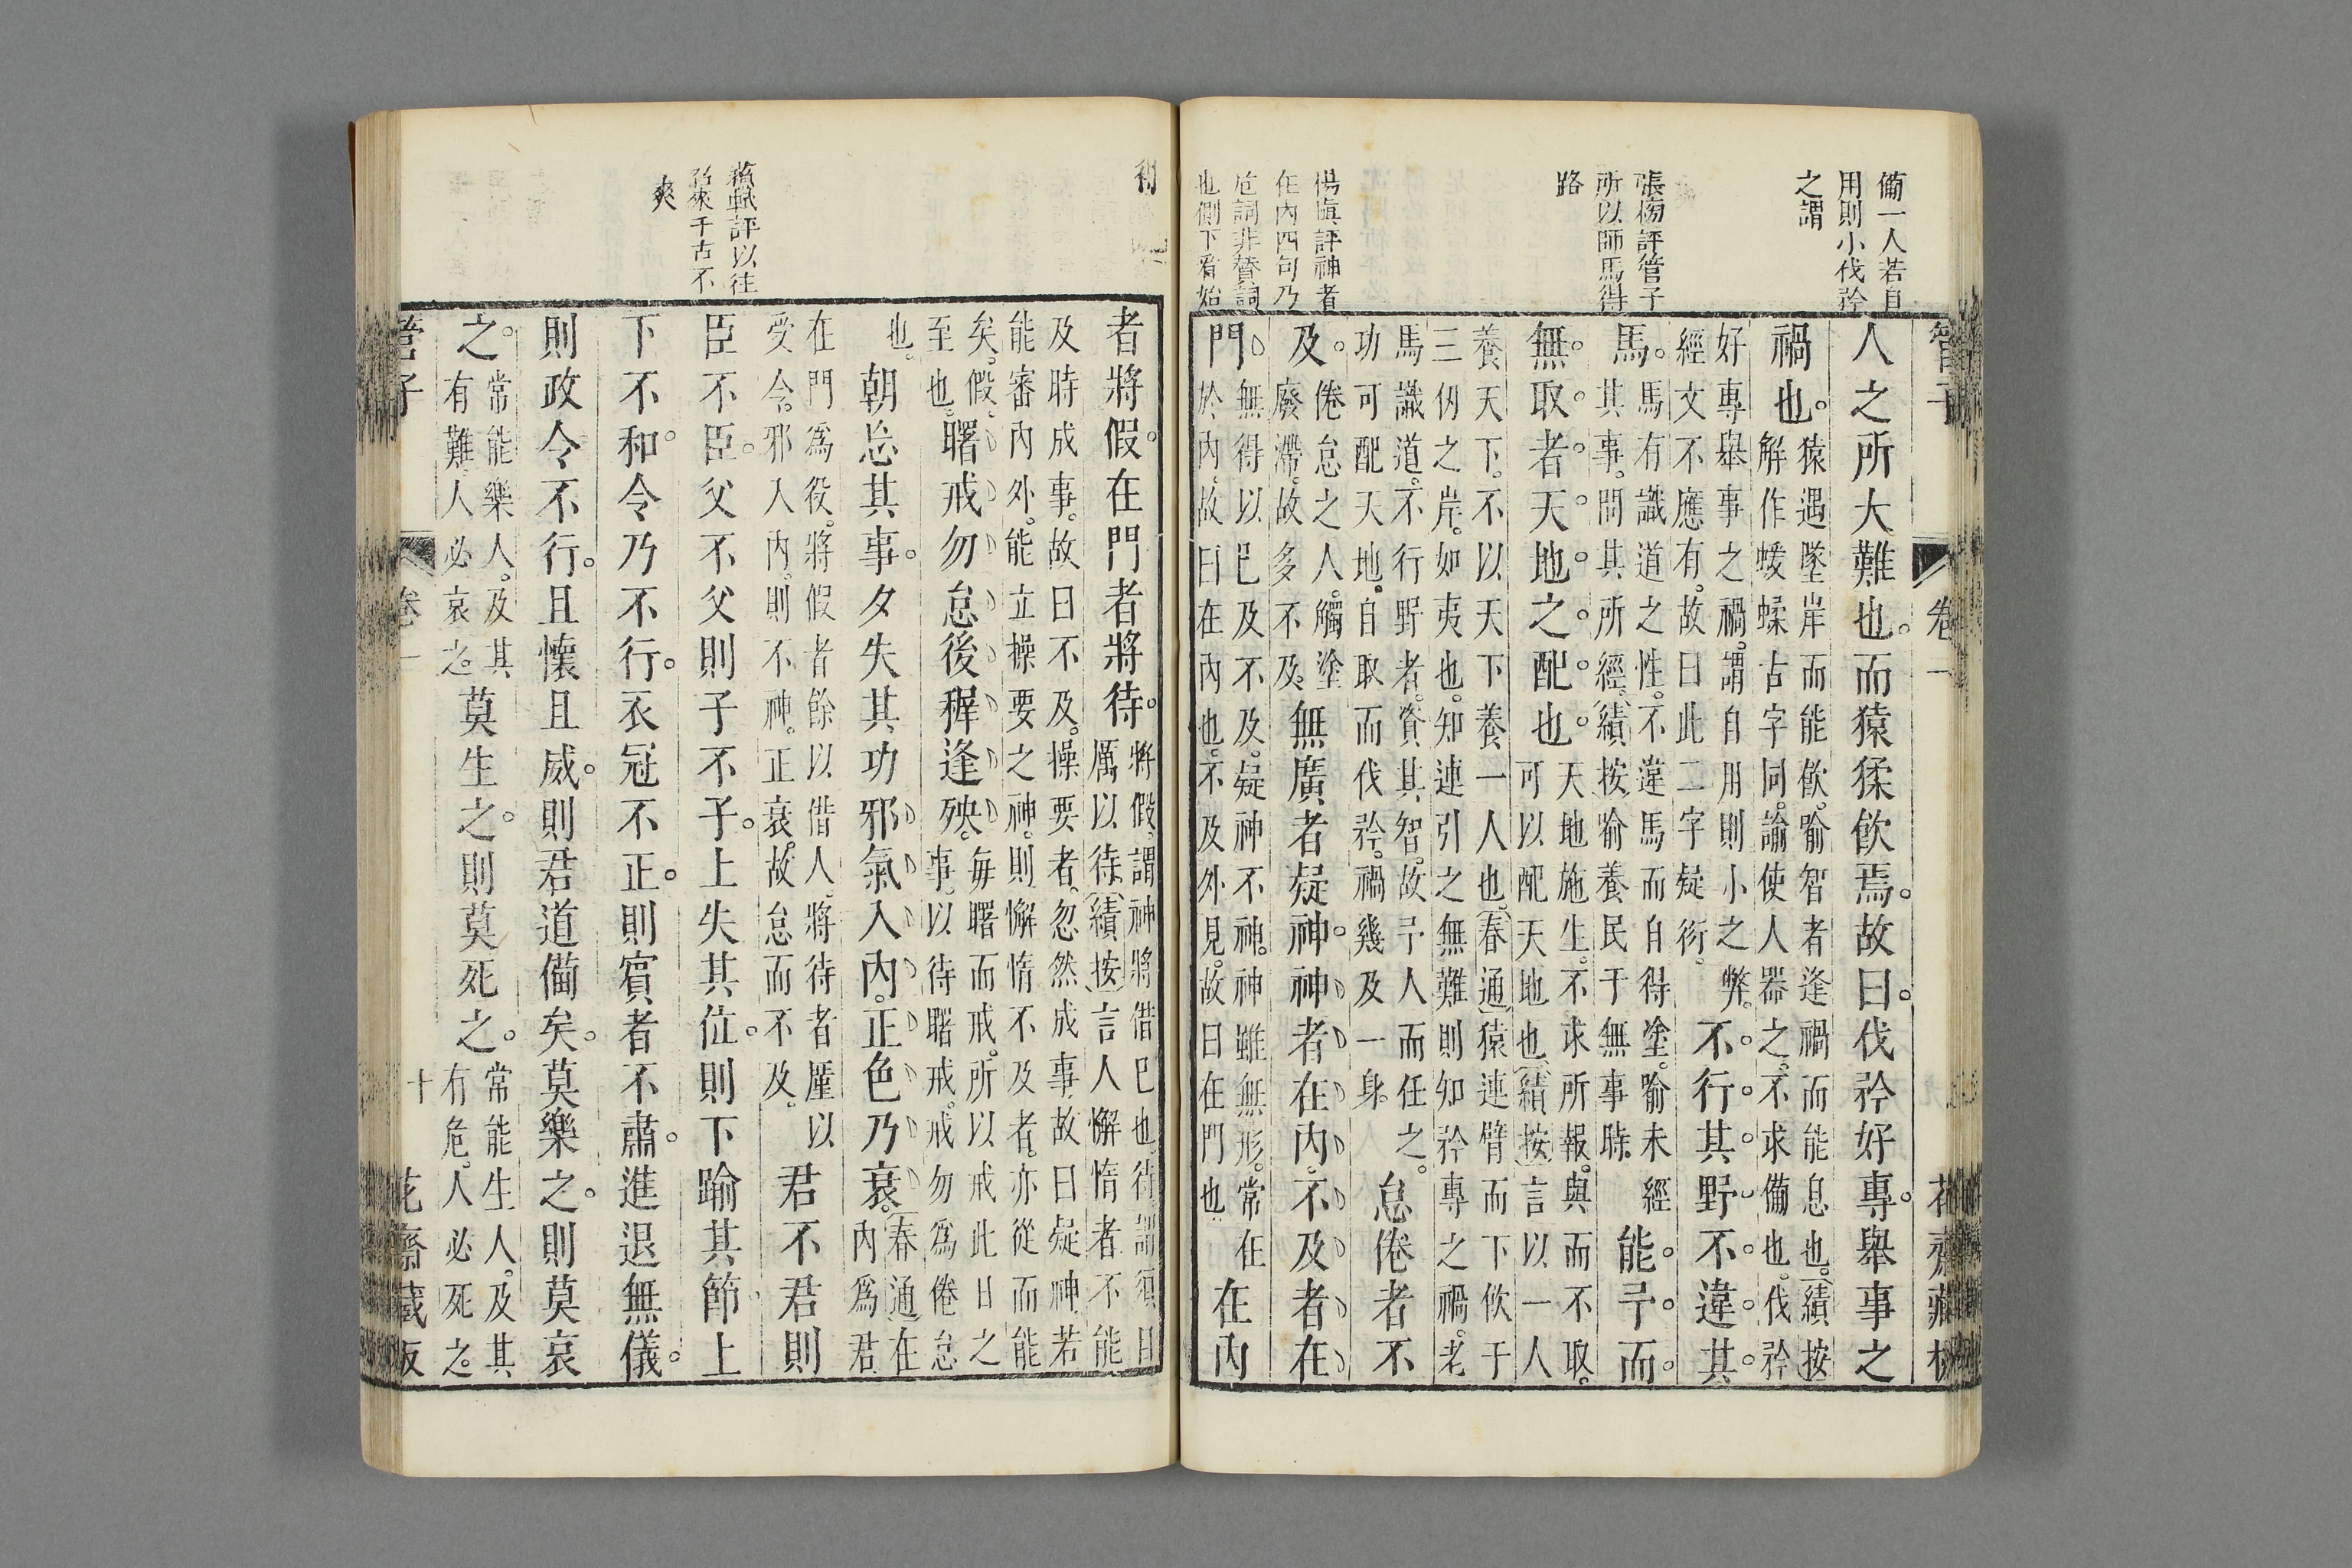 備一人若自
用則小伐矜
之謂
張榜評管子
所以師馬得
路
楊慎評神者
在內四句乃
危詞非贊詞
也側下看始
管子 卷一 花齋藏板
人之所大難也。而猿猱飲焉。故曰。伐矜好專。舉事之
禍也。
猿遇墜岸而能飲。喻智者逢禍而能息也。(續按)
解作蝯蝚古字同。諭使人器之。不求備也。伐矜
好專舉事之禍。謂自用則小之弊。
經文不應有。故曰此二字疑衍。
不行其野。不違其
馬。
馬有識道之性。不違馬而自得塗。喻未經
其事。問其所經。(續按)喻養民于無事時。
能予而
無取者。天地之配也。
天地施生。不求所報。與而不取。
可以配天地也。(續按)言以一人
養天下。不以天下養一人也。(春通)猿連臂而下飲于
三仞之岸。如夷也。知連引之無難則知矜專之禍。老
馬識道。不行野者。資其智。故予人而任之。
功可配天地。自取而伐矜。禍幾及一身。
怠倦者不
及。
倦怠之人。觸塗
廢滯。故多不及。
無廣者疑神。神者在內。不及者在
門。
無得以巳及不及。疑神不神。神雖無形。常在
於內。故曰在內也。不及外見。故曰在門也
在內
初
蘇軾評以往
來千古不
爽
者將假。在門者將待。
將假。謂神將借巳也。待謂須且
厲以待。(續按)言人懈惰者不能
及時成事。故曰不及。操要者。忽然成事。故曰疑神。若
能審內外。能立操要之神。則懈惰不及者。亦從而能
矣。假
至也。
曙戒勿怠。後穉逢殃。
每曙而戒。所以戒此日之
事。以待曙戒。戒勿為倦怠
也。
朝忘其事。夕失其功。邪氣入內。正色乃衰。
(春通)在
內為君
在門為役。將假者餘以借人。將待者廑以
受令。邪入內。則不神。正衰。故怠而不及。
君不君則
臣不臣。父不父則子不子。上失其位。則下踰其節。上
下不和。令乃不行。衣冠不正。則賓者不肅。進退無儀。
則政令不行。且懷且威。則君道備矣。莫樂之。則莫哀
之。
常能樂人。及其
有難。人必哀之。
莫生之。則莫死之。
常能生人。及其
有危。人必死之。
管子 卷一 十 花齋藏板